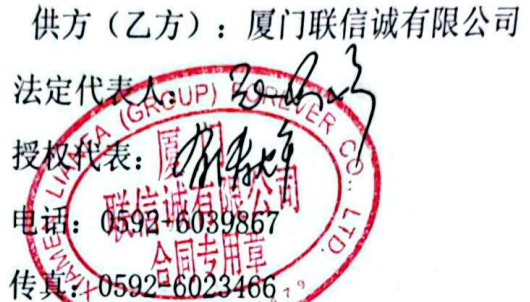 供方（乙方）：厦门联信诚有限公司
法定代表人：
授权代表：
电话：0592-6039867
传真：0592-6023466
XIAMEN LIANFA (GROUP) FOREVER CO., LTD.
厦门
联信诚有限公司
合同专用章